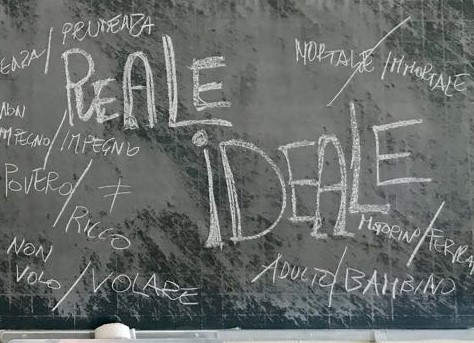 PRUDENZA
REALE
MORTALE / IMMORTALE
NON
IMPEGNO / IMPEGNO
iDEALE
POVERO / ≠
RICCO
NON
VOLO / VOLARE
ADULTO / BAMBINO